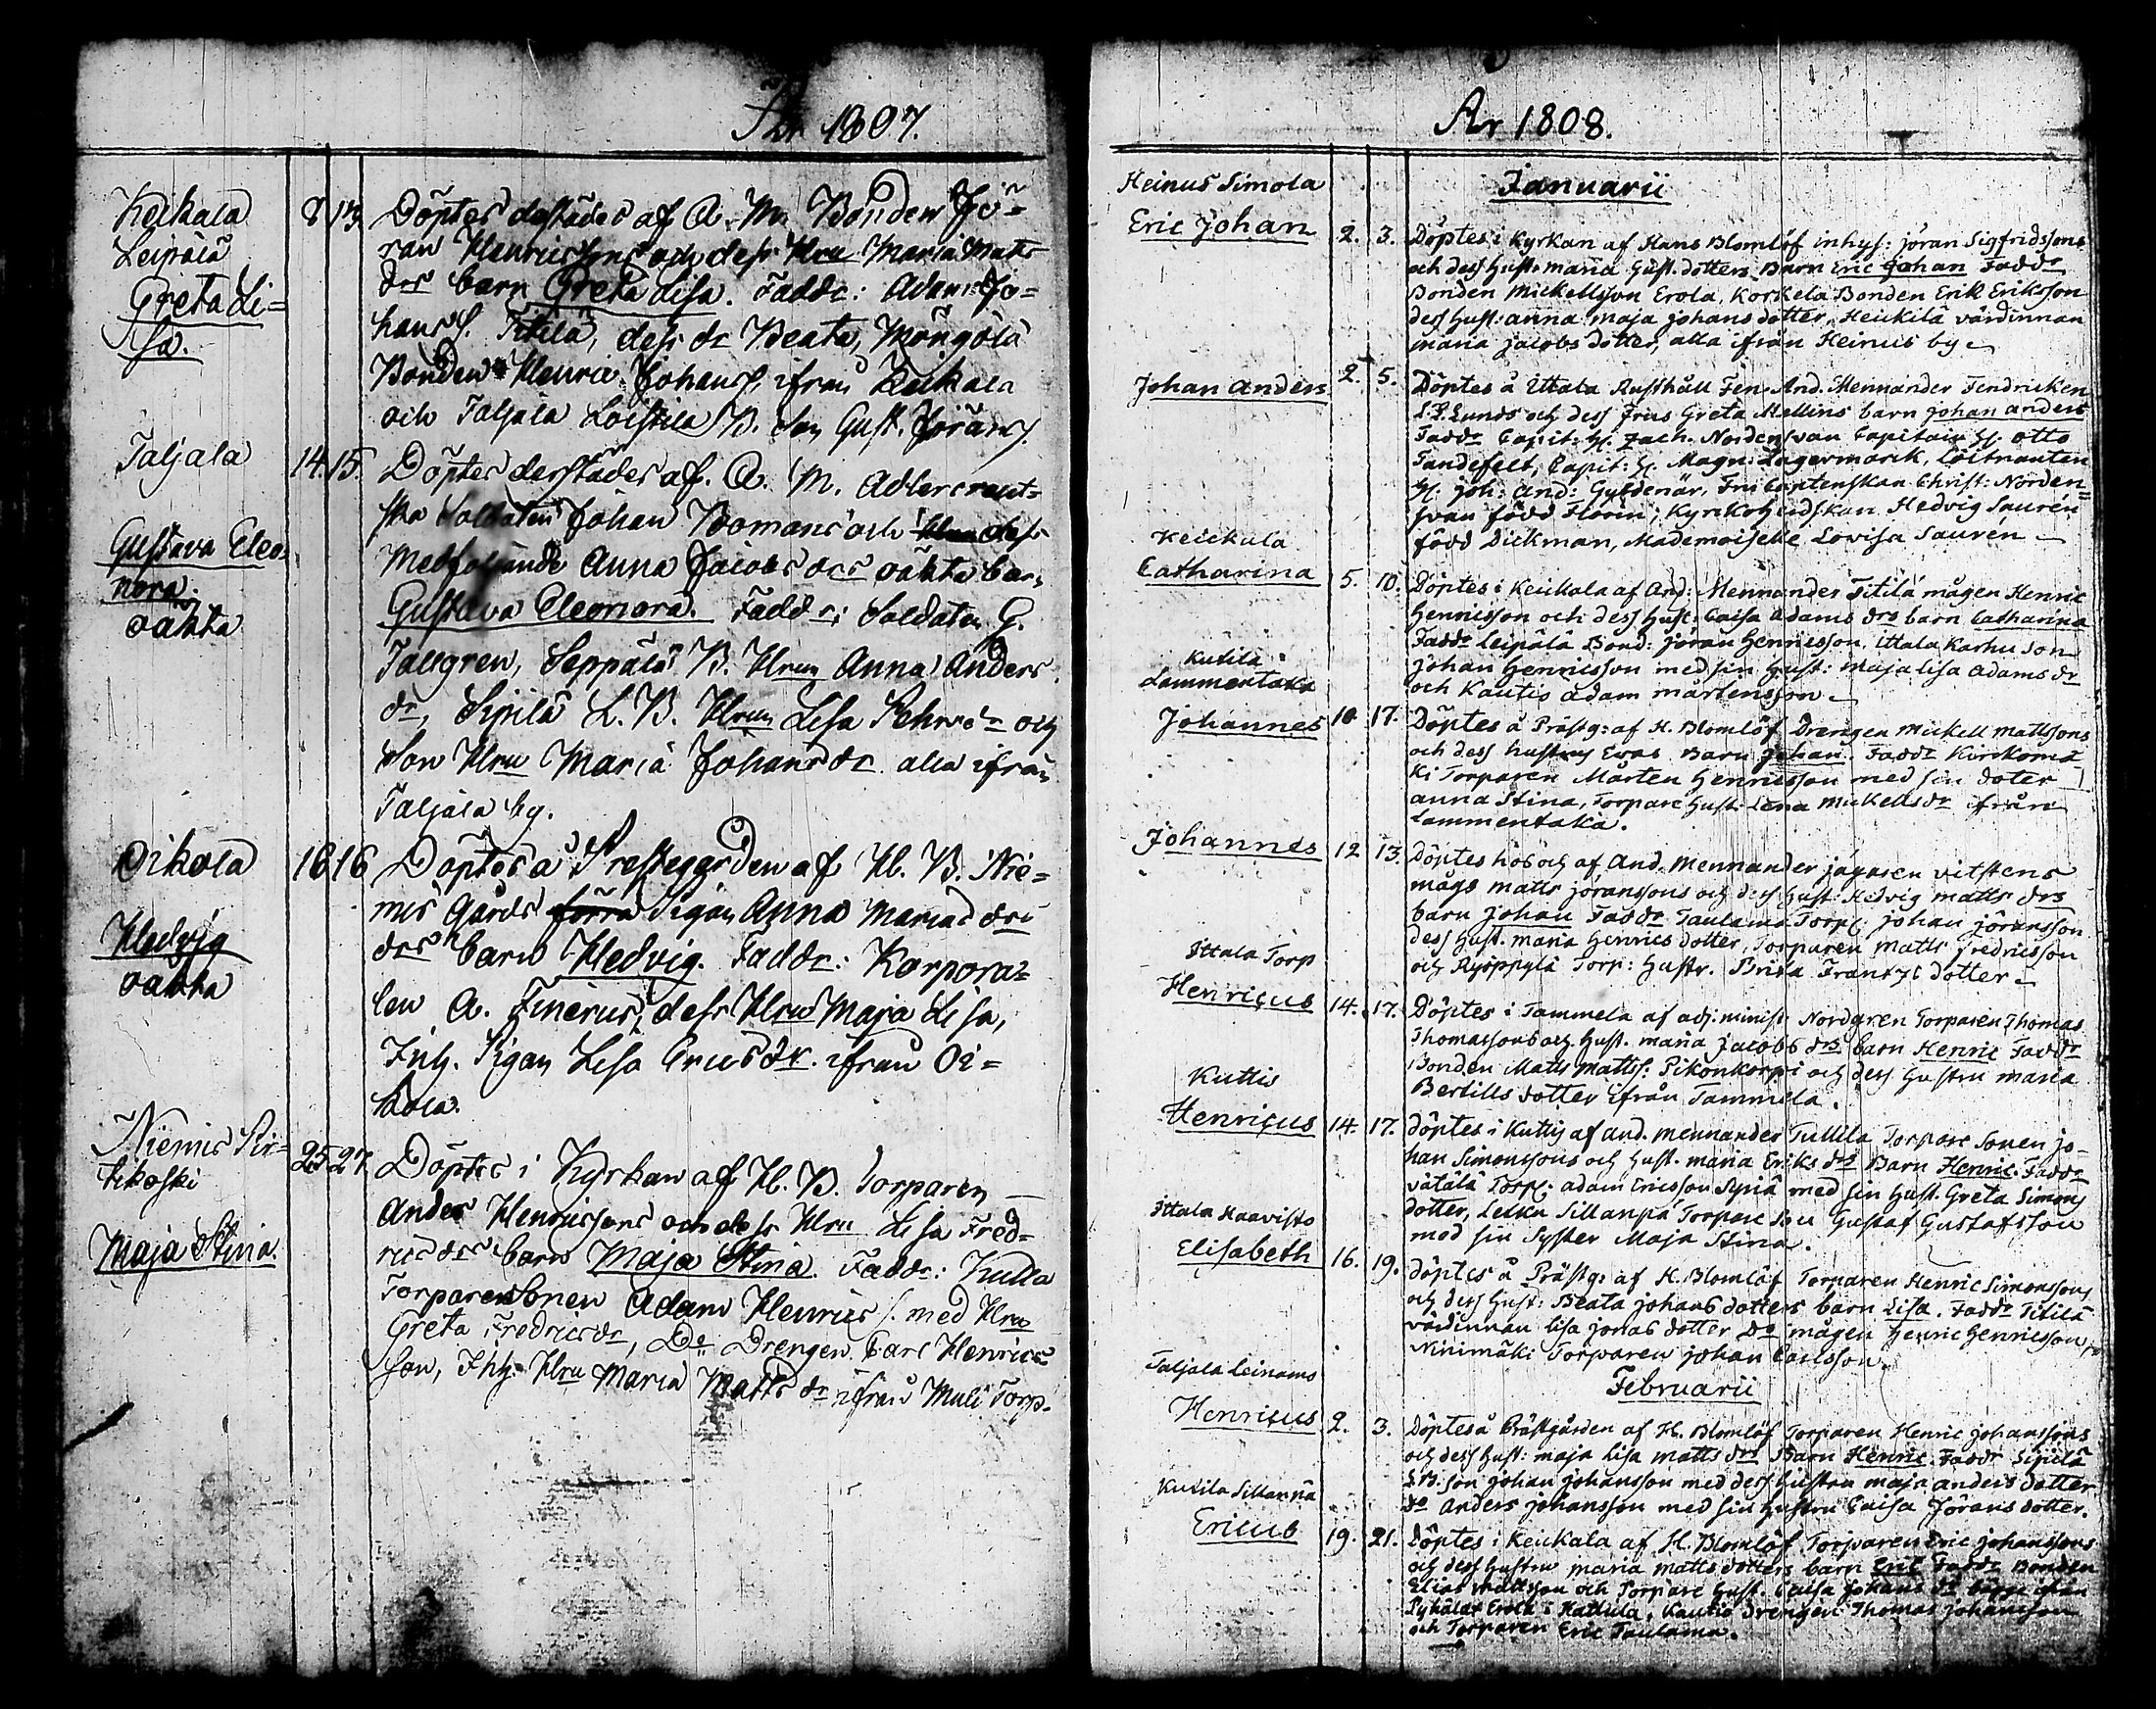 År 1807.
Keikala
Leipälä
Greta Li=
sa.
8 13 Döptes dastädes af A. M. Bonden Jö=
ran Henricssons och dess Hru Maria Matts
drs barn Greta Lisa. Faddr: Adam Jo=
hans S. Titilä, dess dr Beata, Mongola
Bonden Henric Johans S. ifrån Keikala
och Taljala Loistila B. Son Gust. Jörans S.
Taljala
Gustava Eleo=
nora.
oäkta
14. 15. Döptes derstädes af A. M. Adlercreut=
ska Soldaten Johan Bomans och dess
Medfoljande Anna Jacobs drs oäkta barn
Gustava Eleonora. Faddr: Soldaten G.
Tallgren, Seppälä B. Hrun Anna Anders
dr, Sipilä L. B. Hrun Lisa dr och
Son Hru Maria Johans dr alla ifrån
Taljala by.
Oikola
Hedvig
oäkta
16 16 Döptes å Prestegården af H. B. Nie=
mis Gårds förra Pigan Anna Marias
drs barn Hedvig. Faddr: Korpora=
len A. Finerus, dess Hru Maja Lisa,
Inh. Pigan Lisa Erics dr. ifrån Oi=
kola.
Niemis Pir=
tikoski
Maja Stina.
25 27 Döptes i Kyrkan af H. B. Torparen
Anders Henricssons och dess Hru Lisa Fred=
rics drs barn Maja Stina. Faddr: Kulla
Torpare Sonen Adam Henrics S. med Hru
Greta Fredrics dr, Do Drengen Carl Henrics
son, Inh. Hru Maria Matts dr ifrån Muli Torp.
År 1808.
Januarii
Heinus Simola
Eric Johan
2. 3. Döptes i Kyrkan af Hans Blomlöf inhys: Jöran Sigfridssons
och dess Hust: Maria Gust. dotters Barn Eric Johan Faddr
Bonden Mickellsson Erola, Korkela Bonden Erik Eriksson
dess Hust: Anna Maja Johans dotter, Heickilä värdinnan
Maria Jacobs dotter, alla ifrån Heinus by.
Johan Anders
2. 5. Döptes å Ittala Rusthåll And. Mennander Fendricken
Lunds och dess Frus Greta Mellins barn Johan Anders
Faddr Capit: H. Zach. Nordensvan Capitain H. Otto
Tandefelt, Capit: H. Magn: Lagermarck, Löitnanten
H. Joh: And: Gyldenär, Fru Christ: Norden=
svan född Florin, Hedvig Saurén
född Dickman, Mademoiselle Lovisa Saurén
Keickala
Catharina
5. 10. Döptes i Keickala af And: Mennander Titilä mågen Henric
Henricsson och dess Hust: Caisa Adams drs barn Catharina
Faddr Leipälä Bond: Jöran Henricsson, Ittala Karhu Son
Johan Henricsson med sin Hust: Maja Lisa Adams dr
och Kautio Adam Mårtensson.
Kutila
Lammentaka
Johannes
10. 17. Döptes å Prästg: af H. Blomlöf Drengen Mickell Mattssons
och dess hustrus Evas Barn Johan. Faddr Kirckomä
ki Torparen Mårten Henricsson med sin doter
Anna Stina, Torpare Hust: Lena Mickells dr ifrån
Lammentaka.
Johannes
12 13. Döptes hos och af And. Mennander jägaren Vitstens
mågs Matts Jöranssons och dess Hust: Hedvig Matts drs
barn Johan Faddr Taulama Torp: Johan Jöransson
dess Hust. Maria Henrics dotter, Torparen Matts Fredricsson
och Torp: Hustr. Brita Frantzs dotter.
Ittala Torp
Henricus
14. 17. Döptes i Tammela af adj: minist. Nordgren Torparen Thomas
Thomassons och Hust. Maria Jacobs drs barn Henric Faddr
Bonden Matts Mattss: Pikonkorpi och dess Hustru Maria
Bertills dotter ifrån Tammela.
Kuttis
Henricus
14. 17. döptes i Kuttis af And. Mennander Tullila Torpare Sonen Jo=
han Simonssons och Hust. Maria Eriks drs Barn Henric. Faddr
Torp: Adam Ericsson med sin Hust. Greta Simons
dotter, Sillanpä Torpare Son Gustaf Gustafsson
med sin Syster Maja Stina.
Ittala Haavisto
Elisabeth
16. 19. döptes å Prästg: af H. Blomlöf Torparen Henric Simonssons
och dess Hust: Beata Johans dotters barn Lisa. Faddr Titilä
värdinnan Lisa Jonas dotter Do mågen Henric Henricsson,
Ninimäki Torparen Johan Carlsson.
Februarii
Taljala Leinams
Henricus
2. 3. Döptes å Prästgården af H. Blomlöf Torparen Henric Johanssons
och dess Hust: Maja Lisa Matts drs Barn Henric. Faddr Sipilä
L.B. Son Johan Johansson med dess Hustru Maja Anders dotter
Do Anders Johansson med sin Hustru Caisa Jörans dotter.
Kutila Sillanpä
Ericus
19. 21. Döptes i Keickala af H. Blomlöf Torparen Eric Johanssons
och dess Hustru Maria Matts dotters barn Eric Faddr Bonden
Elias Mattsson och Torpare Hust. Caisa Johans dr
Erola i Hattula, Kautio Drengen Thomas Johansson
och Torparen Eric Taulama.